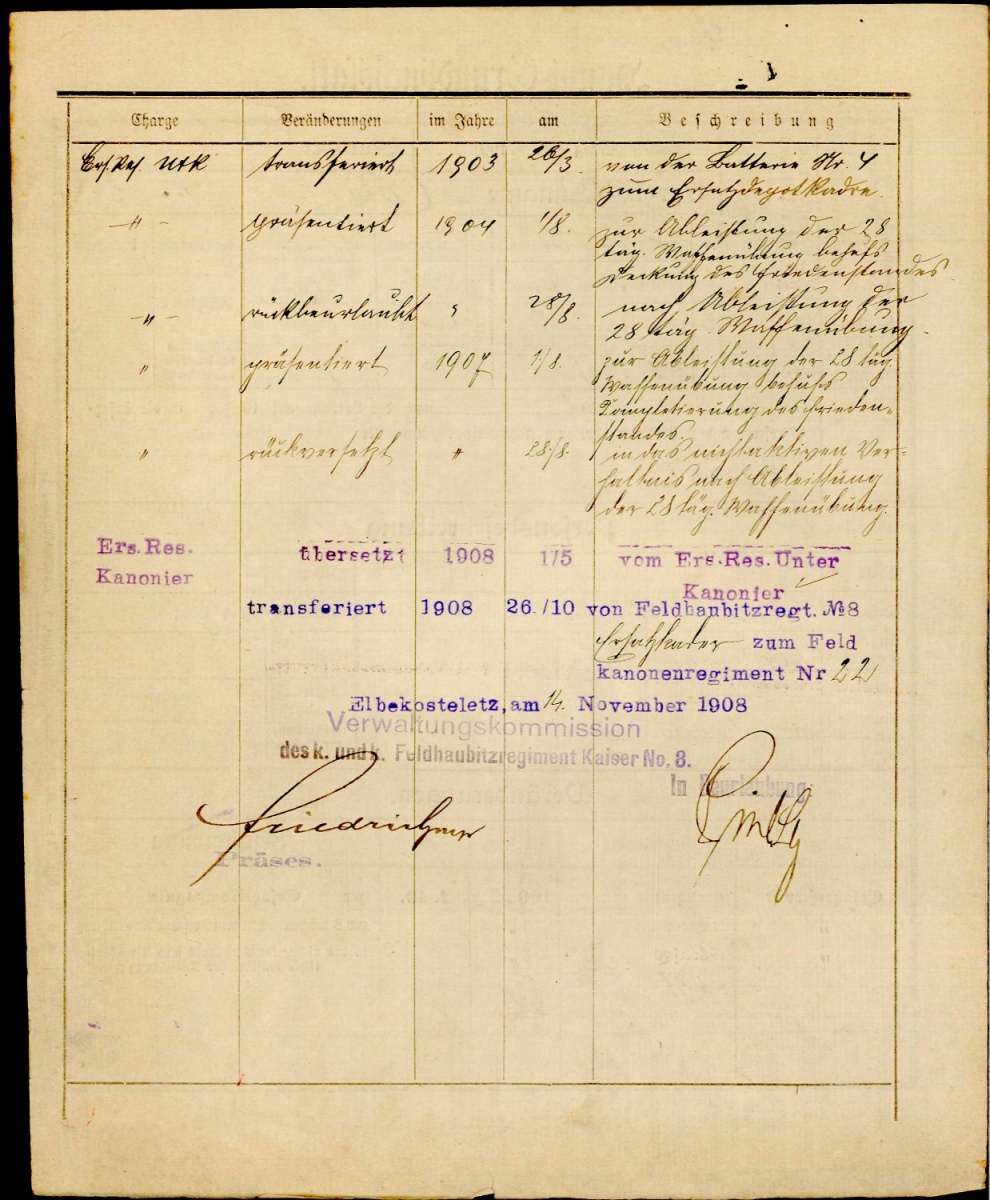 Charge Veränderungen im Jahre am Beschreibung
Ers. Res. Utk transferiert 1903 26/3. von der Batterie Nr. 4
zum Ersatzdepot Kadre.
-"- präsentiert 1904 1/8. zur Ableistung der 28
täg. Waffenübung behufs
Deckung des Friedenstandes.
-"- rückbeurlaubt " 28/8. nach Ableistung der
28 täg. Waffenübung.
" präsentiert 1907 1/8. zur Ableistung der 28 täg.
Waffenübung behufs
Completierung des Frieden-
standes.
" rückversetzt " 28./8. in das nichtaktiven Ver-
hältnis nach Ableistung
der 28 täg. Waffenübung.
Ers. Res. übersetzt 1908 1/5 vom Ers.Res.Unter
Kanonier Kanonier
transferiert 1908 26./10 von Feldhaubitzregt. №8
Ersatzkader zum Feld
kanonenregiment Nr 22
Elbekosteletz, am 14. November 1908
Verwaltungskommission
des k. und k. Feldhaubitzregiment Kaiser No. 8.
In Beurlaubung:
Präses.